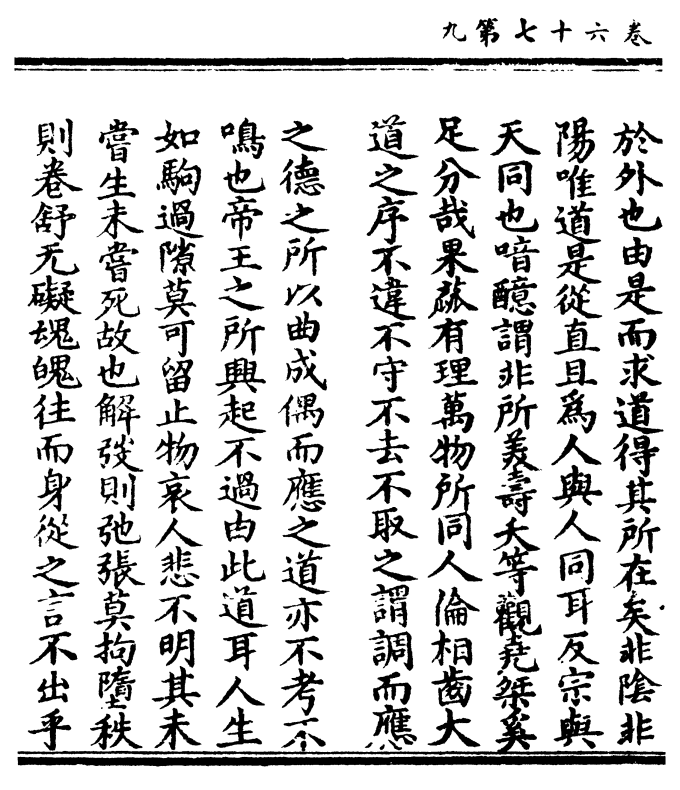 卷六十七第九
於外也由是而求道得其所在矣非陰非
陽唯道是從直且爲人與人同耳反宗與
天同也喑醷謂非所美壽夭等觀堯桀奚
足分哉果蓏有理萬物所同人倫相齒大
道之序不違不守不去不取之謂調而應
之德之所以曲成偶而應之道亦不考不
鳴也帝王之所興起不過由此道耳人生
如駒過隙莫可留止物哀人悲不明其未
嘗生未嘗死故也解弢則弛張莫拘墮秩
則卷舒无礙魂魄往而身從之言不出乎